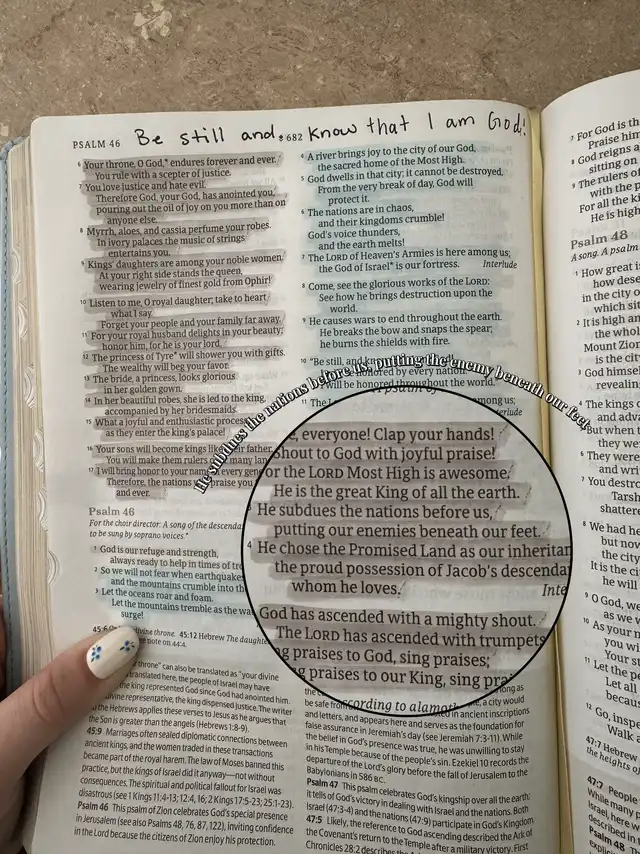 PSALM 46
Be still and
682
Know that I am God!
6 Your throne, O God,* endures forever and ever.
You rule with a scepter of justice.
7 You love justice and hate evil.
Therefore God, your God, has anointed you,
pouring out the oil of joy on you more than on
anyone else.
8 Myrrh, aloes, and cassia perfume your robes.
In ivory palaces the music of strings
entertains you.
9 Kings' daughters are among your noble women.
At your right side stands the queen,
wearing jewelry of finest gold from Ophir!
10 Listen to me, O royal daughter; take to heart
what I say.
Forget your people and your family far away.
11 For your royal husband delights in your beauty;
honor him, for he is your lord.
12 The princess of Tyre* will shower you with gifts.
The wealthy will beg your favor.
13 The bride, a princess, looks glorious
in her golden gown.
14 In her beautiful robes, she is led to the king,
accompanied by her bridesmaids.
15 What a joyful and enthusiastic process
as they enter the king's palace!
16 Your sons will become kings like their father.
You will make them rulers over many lan
17 I will bring honor to your name in every gene
Therefore, the nations will praise you
and ever.
Psalm 46
For the choir director: A song of the descenda
to be sung by soprano voices.*
1 God is our refuge and strength,
always ready to help in times of tro
2 So we will not fear when earthquakes
and the mountains crumble into th
3 Let the oceans roar and foam.
Let the mountains tremble as the wa
surge!
divine throne. 45:12 Hebrew The daughte
note on 44:4.
throne" can also be translated as "your divine
translated here, the people of Israel may have
king represented God since God had anointed him.
divine representative, the king dispensed justice. The writer
the Hebrews applies these verses to Jesus as he argues that
the Son is greater than the angels (Hebrews 1:8-9).
45:9 Marriages often sealed diplomatic connections between
ancient kings, and the women traded in these transactions
became part of the royal harem. The law of Moses banned this
practice, but the kings of Israel did it anyway—not without
consequences. The spiritual and political fallout for Israel was
disastrous (see 1 Kings 11:4-13; 12:4, 16; 2 Kings 17:5-23; 25:1-23).
Psalm 46 This psalm of Zion celebrates God's special presence
in Jerusalem (see also Psalms 48, 76, 87, 122), inviting confidence
in the Lord because the citizens of Zion enjoy his protection.
4 A river brings joy to the city of our God,
the sacred home of the Most High.
5 God dwells in that city; it cannot be destroyed.
From the very break of day, God will
protect it.
6 The nations are in chaos,
and their kingdoms crumble!
God's voice thunders,
and the earth melts!
7 The LORD of Heaven's Armies is here among us;
the God of Israel* is our fortress. Interlude
8 Come, see the glorious works of the LORD:
See how he brings destruction upon the
world.
9 He causes wars to end throughout the earth.
He breaks the bow and snaps the spear;
he burns the shields with fire.
10 "Be still, and
honored by every nation.
will be honored throughout the world."
11 The L
among us;
erlude
He subdues the nations before us, putting the enemy beneath our feet
e, everyone! Clap your hands!
shout to God with joyful praise!
or the LORD Most High is awesome.
He is the great King of all the earth.
3 He subdues the nations before us,
putting our enemies beneath our feet.
4 He chose the Promised Land as our inheritan
the proud possession of Jacob's descenda
whom he loves.
Inte
God has ascended with a mighty shout.
The LORD has ascended with trumpets
ng praises to God, sing praises;
g praises to our King, sing pra
ccording to alamoth
long as
be safe from
e, a city would
in ancient inscriptions
and letters, and appears here and serves as the foundation for
false assurance in Jeremiah's day (see Jeremiah 7:3-11). While
the belief in God's presence was true, he was unwilling to stay
in his Temple because of the people's sin. Ezekiel 10 records the
departure of the Lord's glory before the fall of Jerusalem to the
Babylonians in 586 BC.
Psalm 47 This psalm celebrates God's kingship over all the earth:
it tells of God's victory in dealing with Israel and the nations. Both
Israel (47:3-4) and the nations (47:9) participate in God's Kingdom
47:5 Likely, the reference to God ascending described the Ark of
the Covenant's return to the Temple after a military victory. First
Chronicles 28:2 describes the Ark
7 For God is th
Praise him
8 God reigns a
sitting on
9 The rulers of
with the p
For all the k
He is high
Psalm 48
A song. A psalm
1 How great i
how dese
in the city o
which sit
2 It is high an
the whol
Mount Zion
is the city
3 God himsel
revealin
4 The kings o
and adva
5 But when t
they we
6 They were
and writ
7 You destro
Tarsh
shattere
8 We had he
but now
the city
It is the ci
he will
9 O God, we
as we w
10 As your n
you wi
Your stro
11 Let the pe
Let all
becaus
12 Go, inspe
Walk a
47:7 Hebrew
the heights o
47:2 People
While many p
Israel, here w
Psalm 48 Th